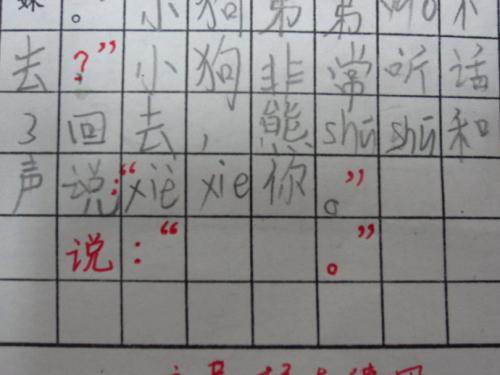 。 小狗弟弟
去？”小狗非常听话
3回去，熊shūshū和
声说：“xièxie你。”
说：“ 。”